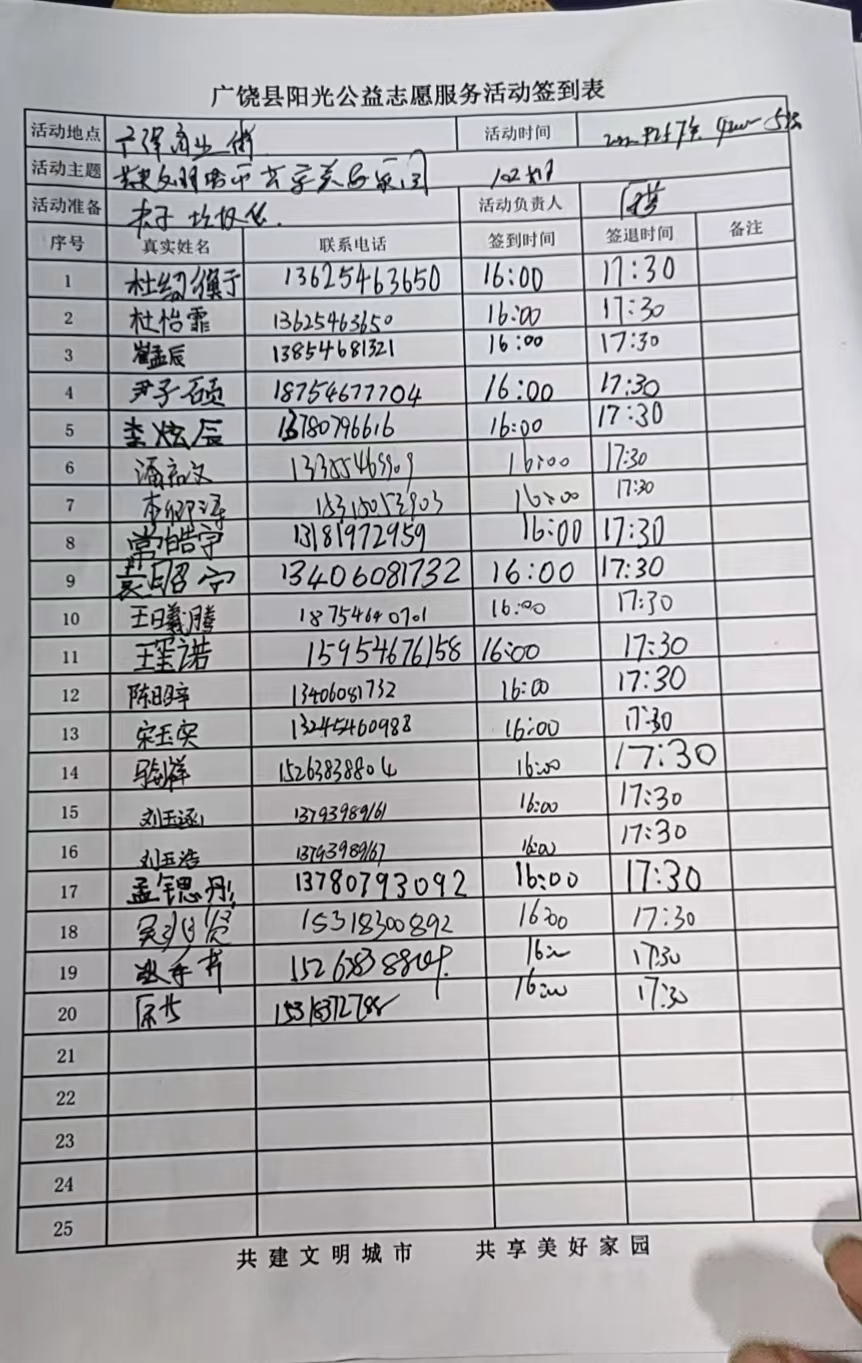 广饶县阳光公益志愿服务活动签到表
活动地点 商业街 活动时间
活动主题 共享美好家园
活动准备 夹子 垃圾袋. 活动负责人
序号 真实姓名 联系电话 签到时间 签退时间 备注
1 杜绍衡于 13625463650 16:00 17:30
2 杜怡霏 13625463650 16:00 17:30
3 崔孟辰 13854681321 16:00 17:30
4 尹子硕 18754677704 16:00 17:30
5 李炫辰 13780796616 16:00 17:30
6 16:00 17:30
7 15315053903 16:00 17:30
8 常皓宇 13181972959 16:00 17:30
9 13406081732 16:00 17:30
10 王曦腾 18754640701 16:00 17:30
11 王玺诺 15954676158 16:00 17:30
12 13406081732 16:00 17:30
13 宋玉奕 13245460988 16:00 17:30
14 15263838804 16:00 17:30
15 刘玉涵 13793989161 16:00 17:30
16 刘玉浩 13793989167 16:00 17:30
17 孟锶彤 13780793092 16:00 17:30
18 15318300892 16:00 17:30
19 17:30
20 17:30
21
22
23
24
25
共建文明城市 共享美好家园